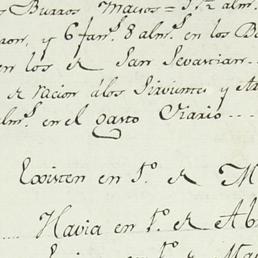 Burros Mayos = 17½ alm.s
y 6 fan.s 8 alm.s en los Bu
en los de San Sevastian
de racion álos Sirvientes y
alm.s en el gasto Diario
Existen en 1.o de M
Havia en 1.o de Ab
en 1.o de Ma